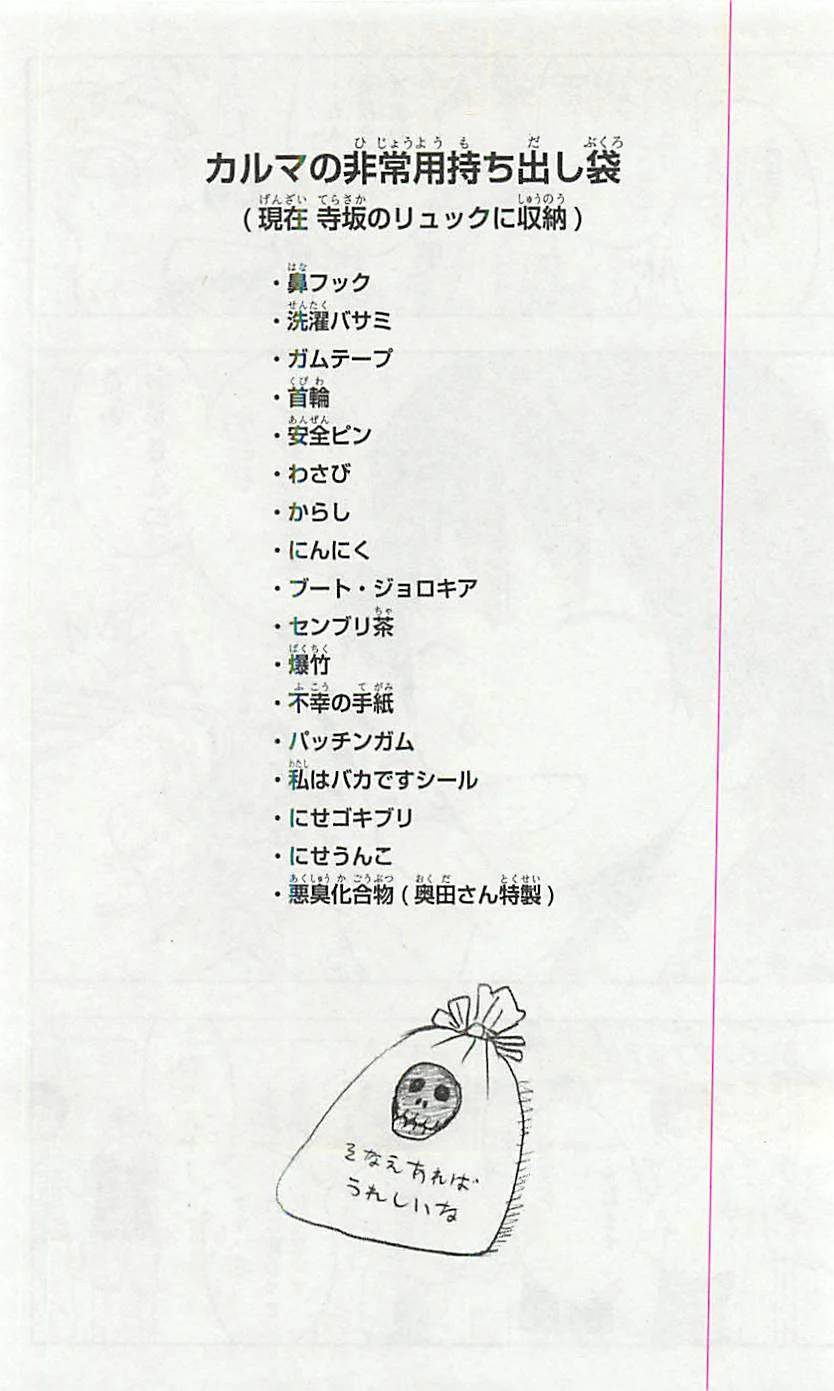 カルマの非常用持ち出し袋
(現在 寺坂のリュックに収納)
・鼻フック
・洗濯バサミ
・ガムテープ
・首輪
・安全ピン
・わさび
・からし
・にんにく
・ブート・ジョロキア
・センブリ茶
・爆竹
・不幸の手紙
・パッチンガム
・私はバカですシール
・にせゴキブリ
・にせうんこ
・悪臭化合物(奥田さん特製)
そなえあれば
うれしいな